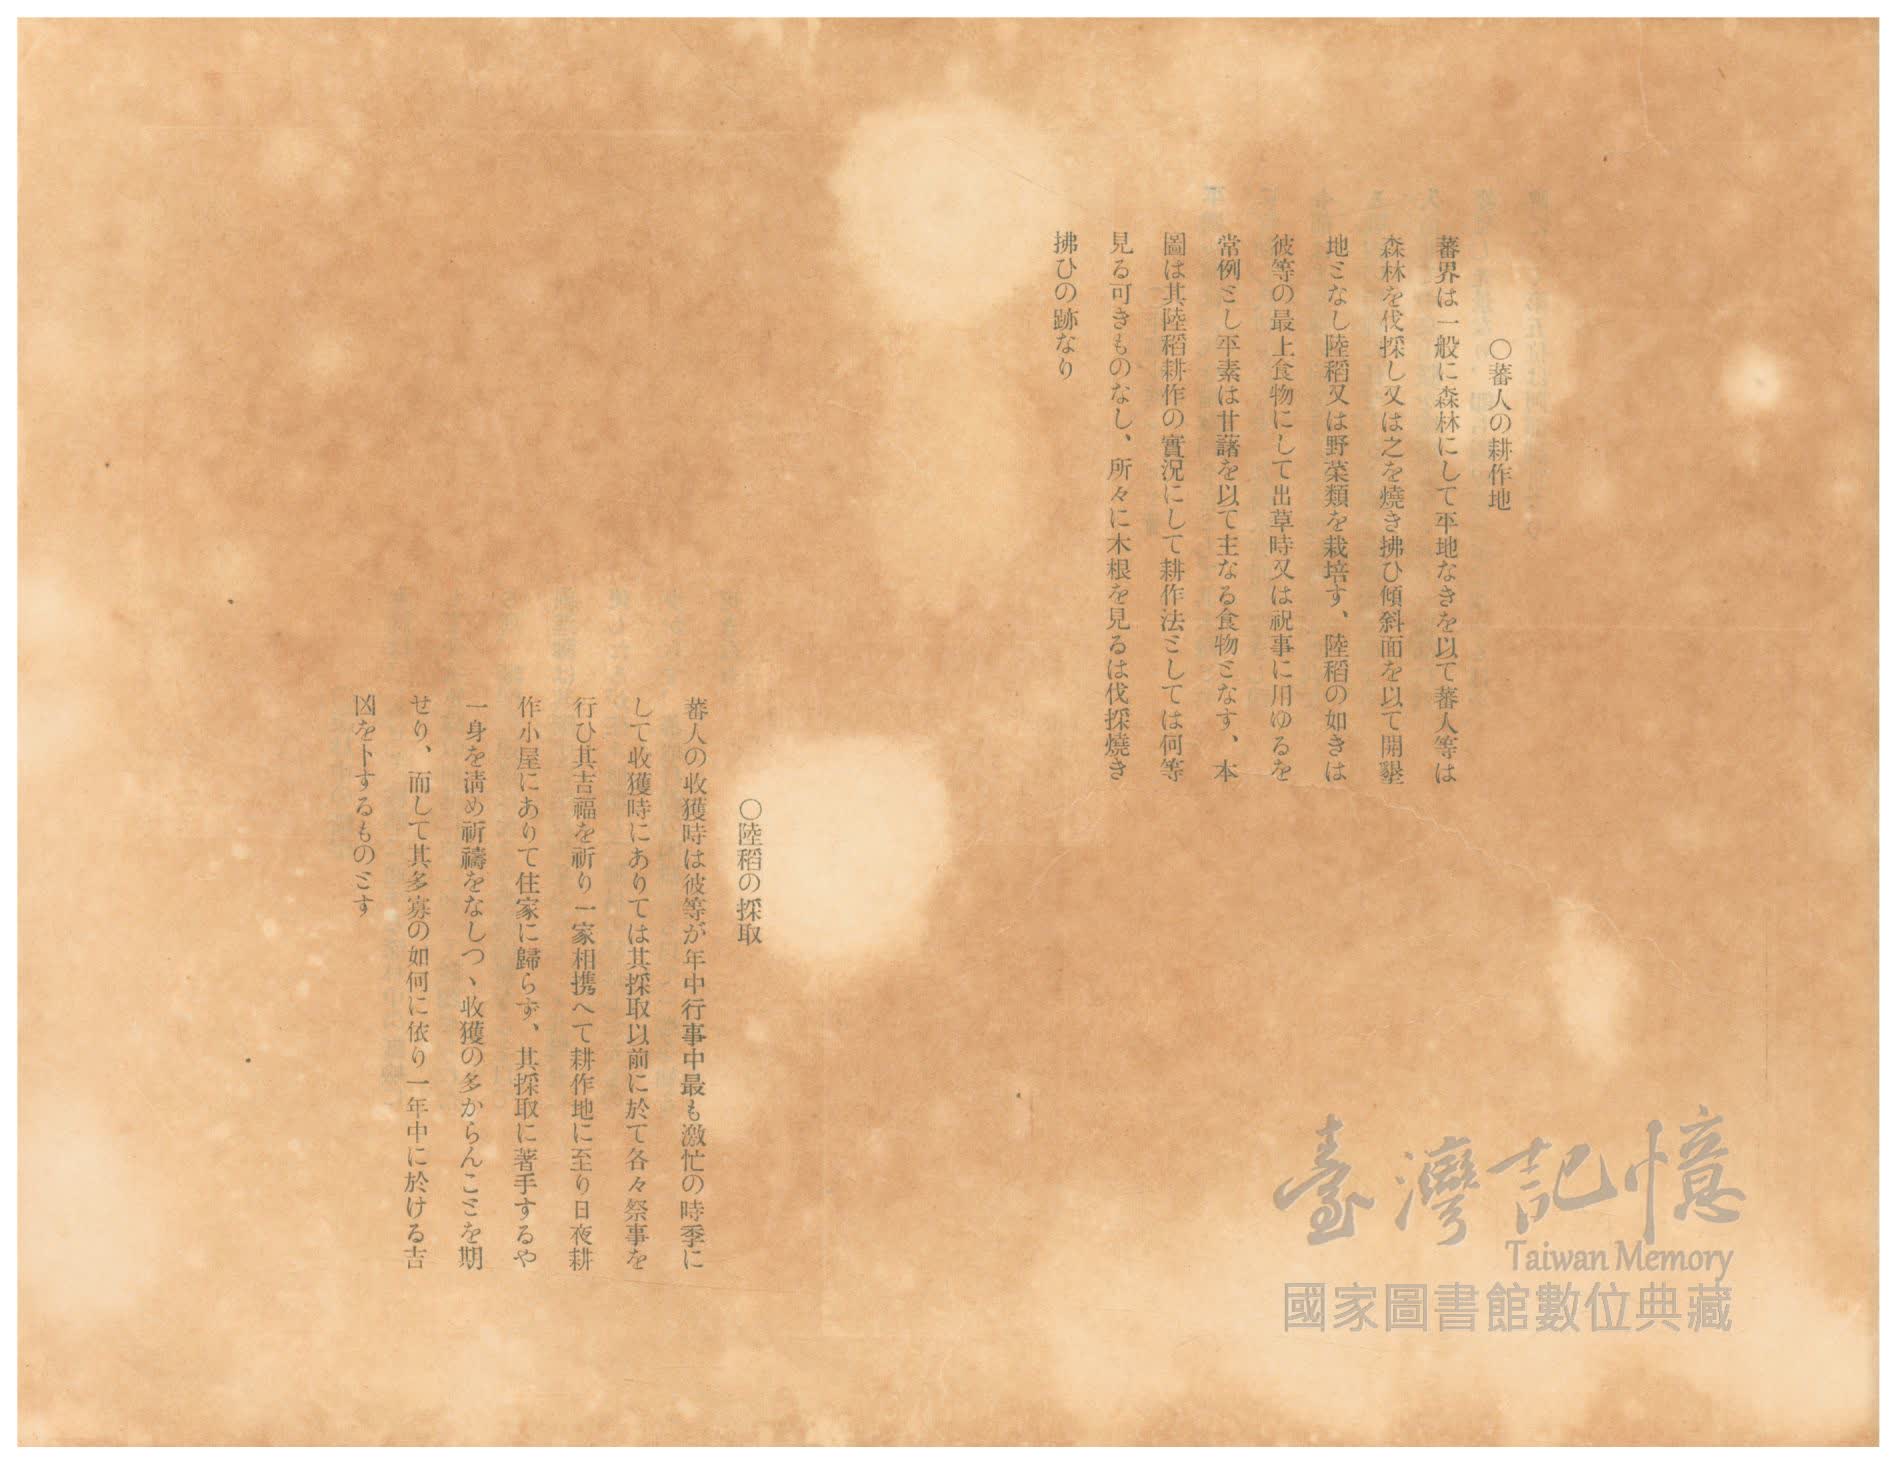 〇蕃人の耕作地
蕃界は一般に森林にして平地なきを以て蕃人等は
森林を伐採し又は之を燒き拂ひ傾斜面を以て開墾
地ミなし陸稻又は野菜類を栽培す、陸稻の如きは
彼等の最上食物にして出草時又は祝事に用ゆるを
常例ミし平素は甘藷を以て主なる食物ミなす、本
圖は其陸稻耕作の實況にして耕作法ミしては何等
見る可きものなし、所々に木根を見るは伐採燒き
拂ひの跡なり
〇陸稻の採取
蕃人の收獲時は彼等が年中行事中最も激忙の時季に
して收獲時にありては其採取以前に於て各々祭事を
行ひ其吉福を祈り一家相携へて耕作地に至り日夜耕
作小屋にありて住家に歸らず、其採取に著手するや
一身を淸め祈禱をなしつヽ收獲の多からんこミを期
せり、而して其多寡の如何に依り一年中に於ける吉
凶を卜するものミす
臺灣記憶
Taiwan Memory
國家圖書館數位典藏